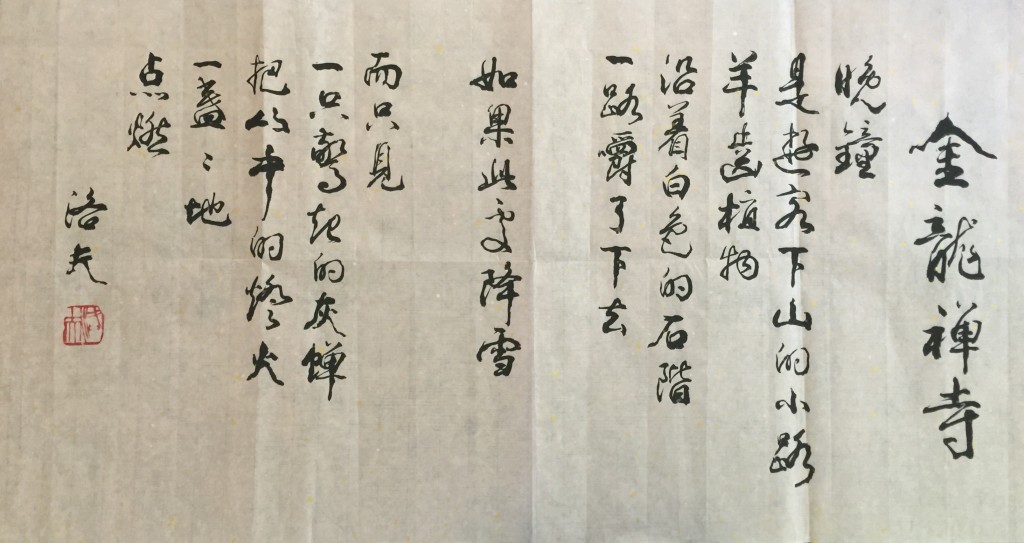 金龍禅寺
晚鐘
是遊客下山的小路
羊齒植物
沿着白色的石階
一路嚼了下去
如果此處降雪
而只見
一只驚起的灰蟬
把山中的燈火
一盞〻地
点燃
洛夫